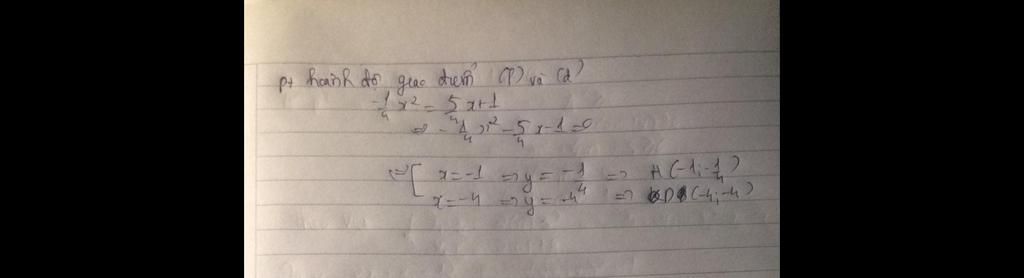 pt hoành độ giao điểm (P) và (d)
-1/4 x² = 5/4 x+1
⇔ -1/4 x² - 5/4 x - 1 = 0
⇔ [ x = -1 ⇒ y = -1/4 ⇒ A(-1; -1/4)
x = -4 ⇒ y = -4 ⇒ D(-4; -4)